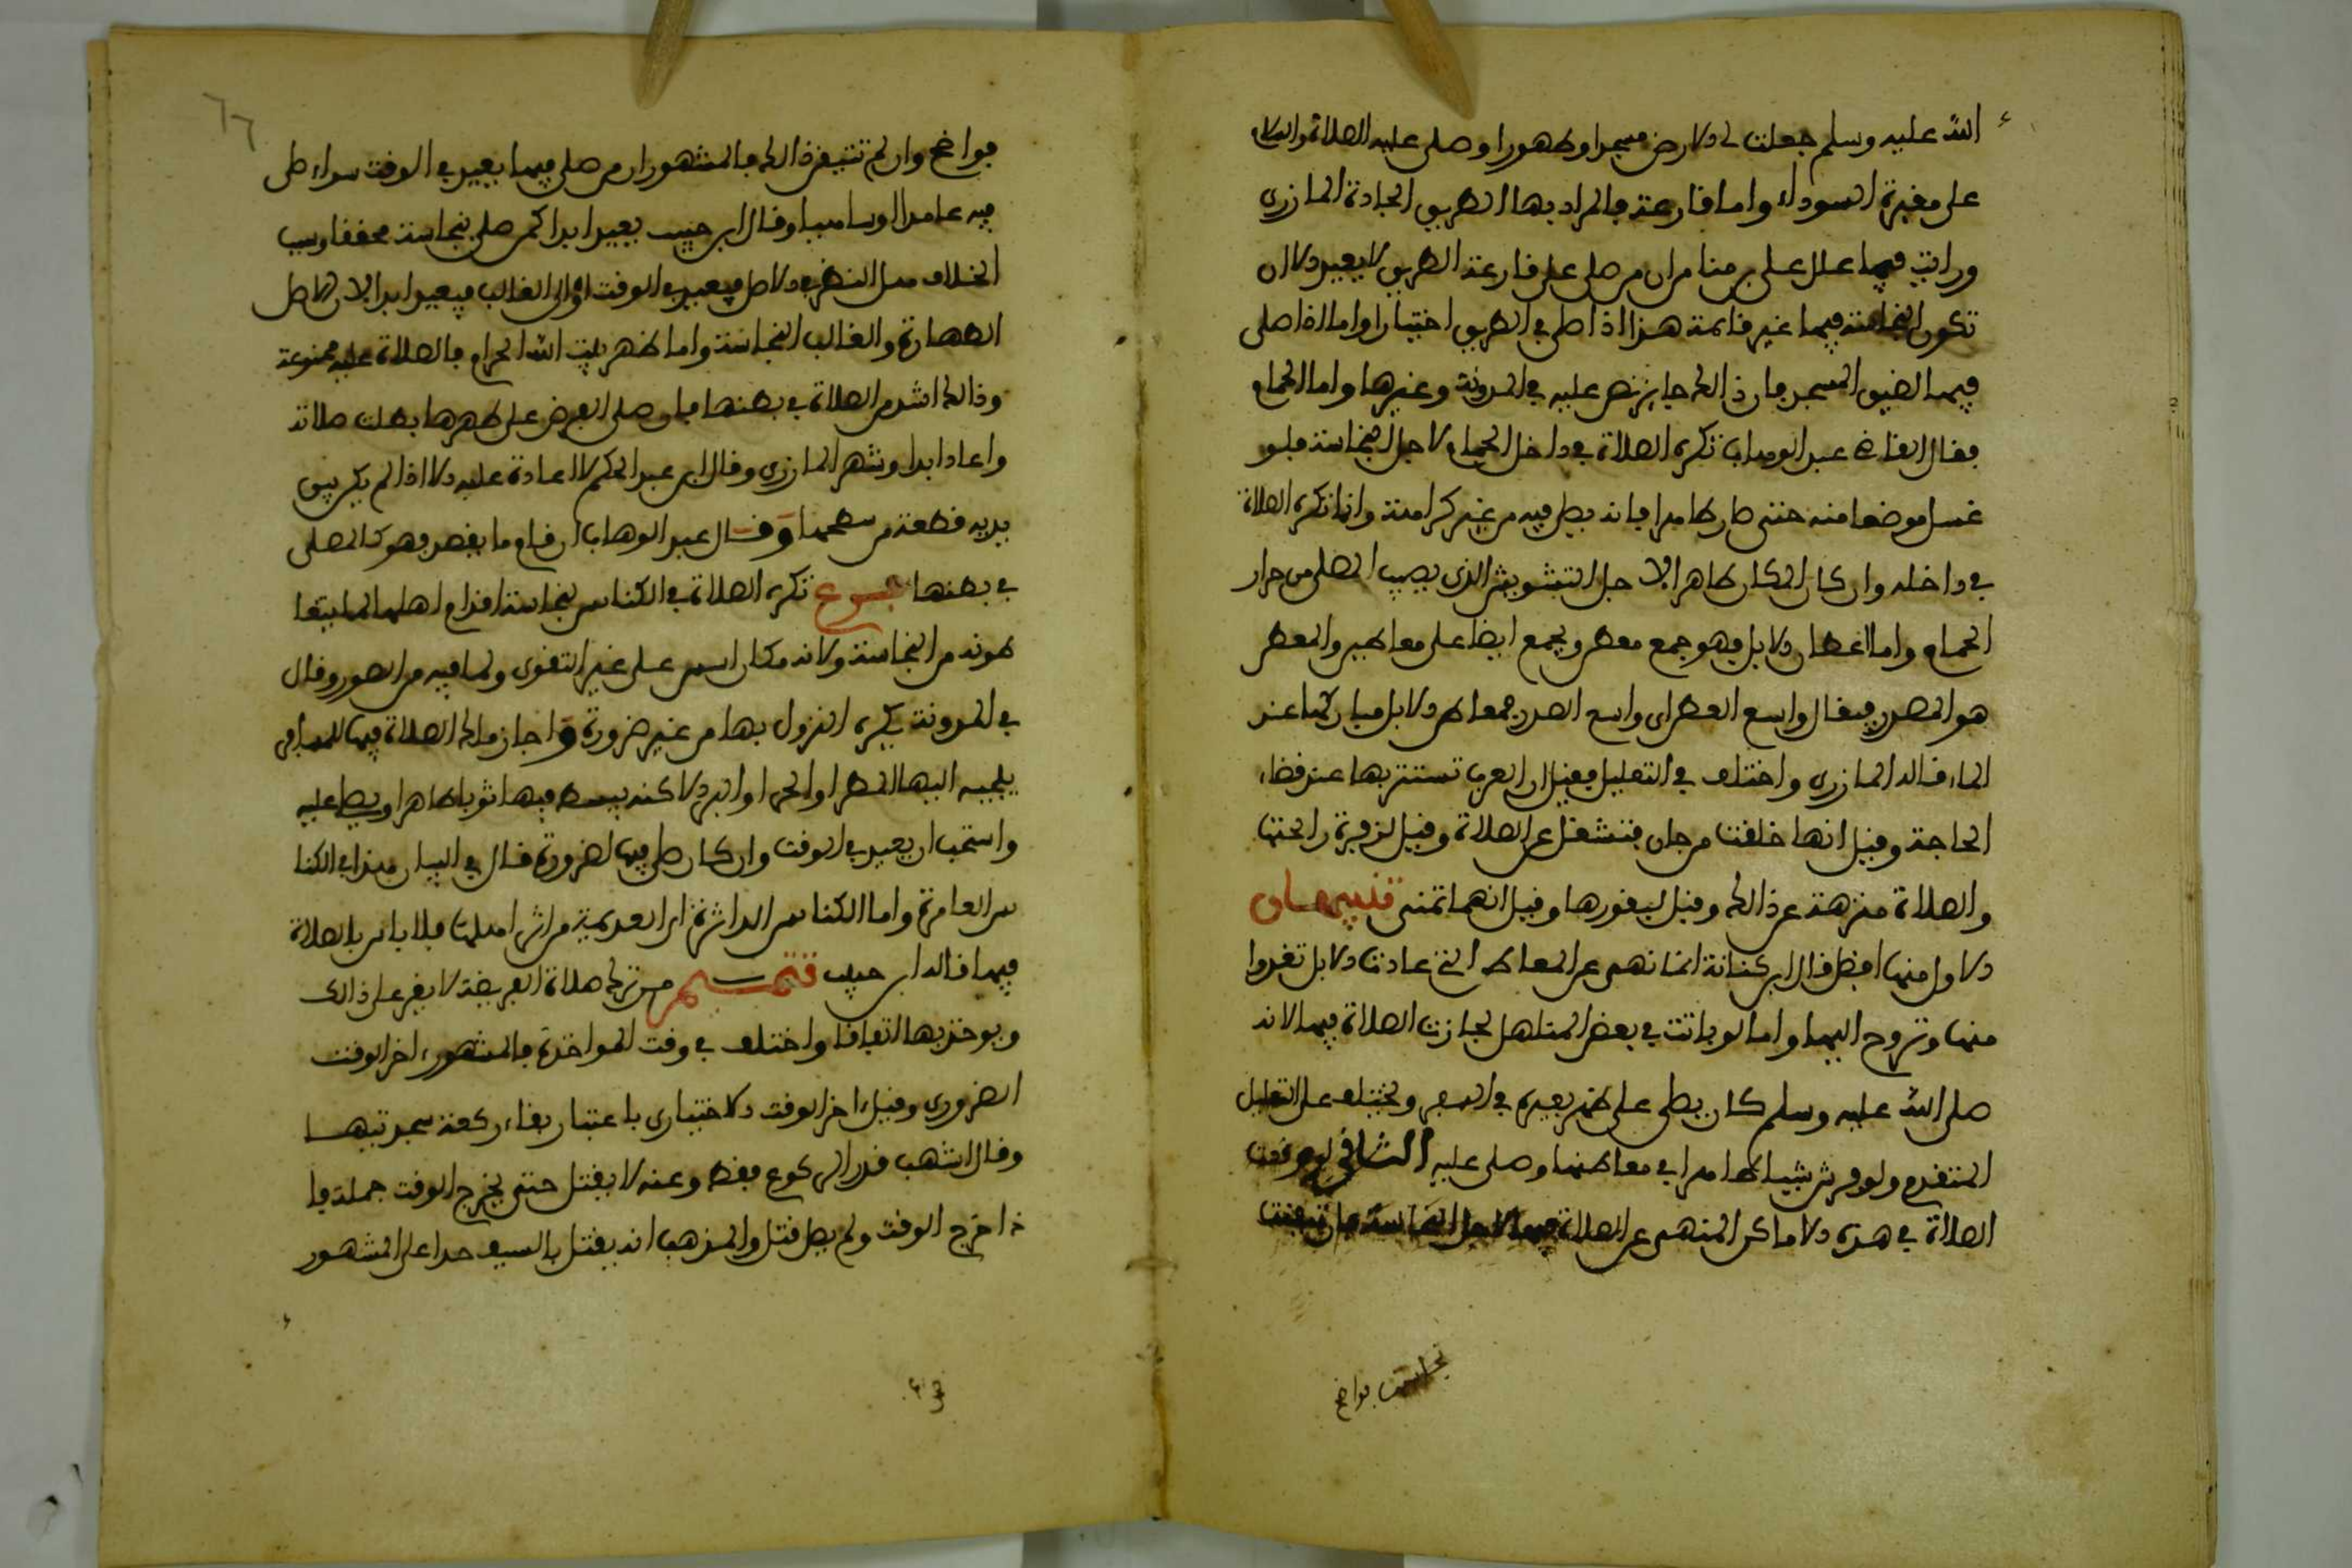 الله عليه وسلم جعلت لي الارض مسجدا وطهورا وصلى عليه الصلاة والسلام
على مقبرة السوداء واما قارعة فالمراد بها الطريق الجادة المازري
ورايت فيما علل على بن منامران من صلى على قارعة الطريق لا يعيد الا ان
تكون النجاسة فيها غير قائمة هذا اذا صلى في الطريق اختيارا واما اذا صلى
فيها لضيق المسجد فان ذالك جايز نص عليه في المدونة وغيرها واما الحمام
فقال القاضي عبد الوهاب تكره الصلاة في داخل الحمام لاجل النجاسة فلو
غسل موضعا منه حتى صار طاهرا فانه يصلى فيه من غير كراهة وانما تكره الصلاة
في داخله وان كان المكان طاهرا لاجل التشويش الذي يصيب المصلى من حرار
الحمام واما اعطان الابل فهو جمع معطن ويجمع ايضا على معاطن والمعطن
هو الصدر فيقال واسع العطن اي واسع الصدر فمعاطن الابل مباركها عند
الماء قاله المازري واختلف في التعليل فقيل ان العرب تستتر بها عند قضاء
الحاجة وقيل انها خلقت من جان فتشغل عن الصلاة وقيل لزفرة رائحتها
والصلاة منزهة عن ذالك وقيل لنفورها وقيل انها تمنى تنبيهان
الاول منها افضل قال ابن كنانة انما نهى عن المعاطن التي عادت الابل تغدوا
منها وتروح اليها واما لو باتت في بعض المناهل لجازت الصلاة فيها لانه
صلى الله عليه وسلم كان يصلى على ظهر بعيره في السفر ويختلف على التعليل
المتقدم ولو فرش شيئا طاهرا في معاطنها وصلى عليه الثاني لو وقعت
الصلاة في هذه الاماكن المنهى عن الصلاة فيها لاجل النجاسة فان تيقنت
نجاستها فواضح
فواضح وان لم تتيقن ذالك فالمشهور ان من صلى فيها يعيد في الوقت سواء صلى
فيه عامدا او ساهيا وقال ابن حبيب يعيد ابدا كمن صلى بنجاسة محققا وسبب
الخلاف هل النظر في الاصل فيعيد في الوقت او الى الغالب فيعيد ابدا لان الاصل
الطهارة والغالب النجاسة واما ظهر بيت الله الحرام فالصلاة عليه ممنوعة
وذالك اشد من الصلاة في بطنها فلو صلى الفرض على ظهرها بطلت صلاته
واعاد ابدا وشهر المازري وقال ابن عبد الحكم لا اعادة عليه الا اذا لم يكن بين
يديه قطعة من سطحها وقال عبد الوهاب ان قام ما يقصد فهو كالمصلى
في بطنها فروع تكره الصلاة في الكنائس لنجاسة اقدام اهلها لما يتعا
طونه من النجاسة ولانه مكان اسس على غير التقوى ولما فيه من الصور وقال
في المدونة يكره النزول بها من غير ضرورة واجاز مالك الصلاة فيها للمسافر
يلجيه اليها المطر او الحر او البرد لاكنه يبسط فيها ثوبا طاهرا ويصلى عليه
واستحب ان يعيد في الوقت وان كان صلى فيها لضرورة قال في البيان هذا في الكنا
ئس العامرة واما الكنائس الداثرة اي العديمة من اثر اهلها فلا باس بالصلاة
فيها قاله ابن حبيب تتميم من ترك صلاة الفريضة لا يقر على ذالك
ويوخذ بها اتفاقا واختلف في وقت المواخذة فالمشهور اخر الوقت
الضروري وقيل اخر الوقت الاختياري باعتبار بقاء ركعة بسجدتيها
وقال اشهب قدر الركوع فقط وعنه لا يقتل حتى يخرج الوقت جملة فا
ذا خرج الوقت ولم يصل قتل والمذهب انه يقتل بالسيف حدا على المشهور